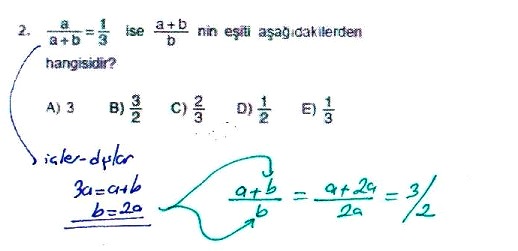 2. a/(a+b) = 1/3 ise (a+b)/b nin eşiti aşağıdakilerden
hangisidir?
A) 3 B) 3/2 C) 2/3 D) 1/2 E) 1/3
içler-dışlar
3a=a+b
b=2a
(a+b)/b = (a+2a)/2a = 3/2